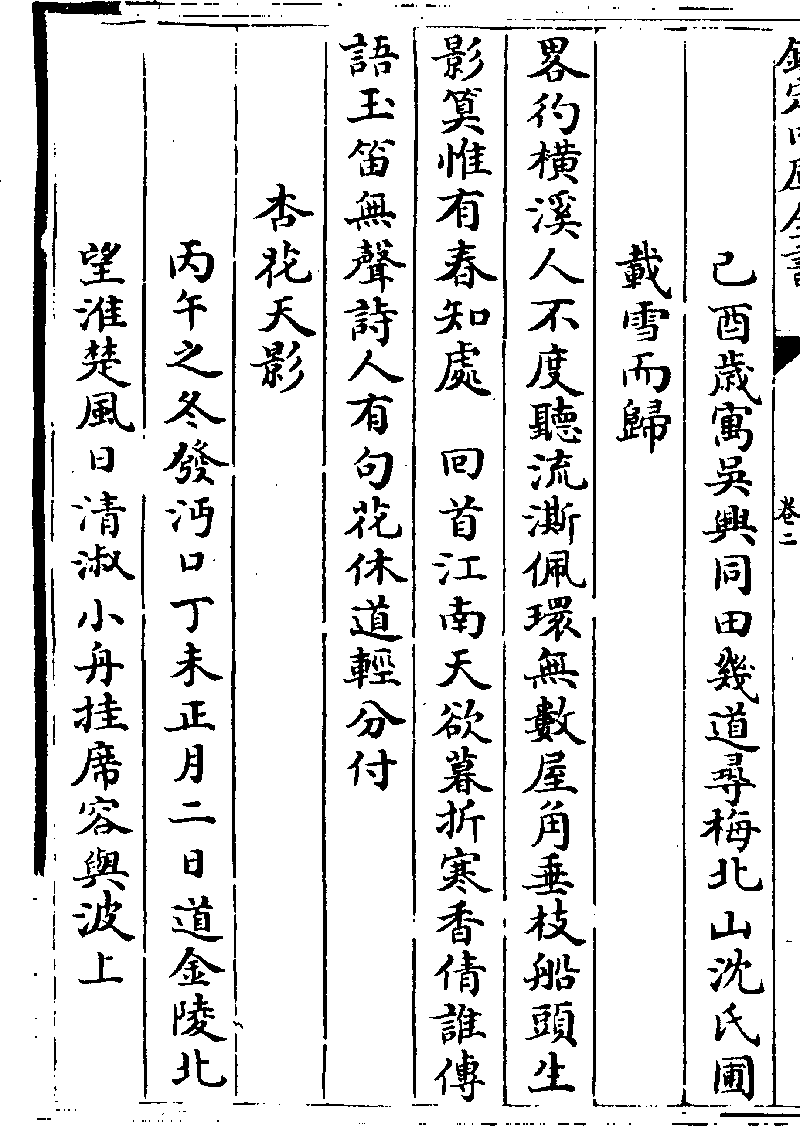 欽定四庫全書
卷二
己酉歲寓吳興同田幾道尋梅北山沈氏圃
載雪而歸
畧彴橫溪人不度聽流澌佩環無數屋角垂枝船頭生
影算惟有春知處　回首江南天欲暮折寒香倩誰傳
語玉笛無聲詩人有句花休道輕分付
杏花天影
丙午之冬發沔口丁未正月二日道金陵北
望淮楚風日清淑小舟挂席容與波上